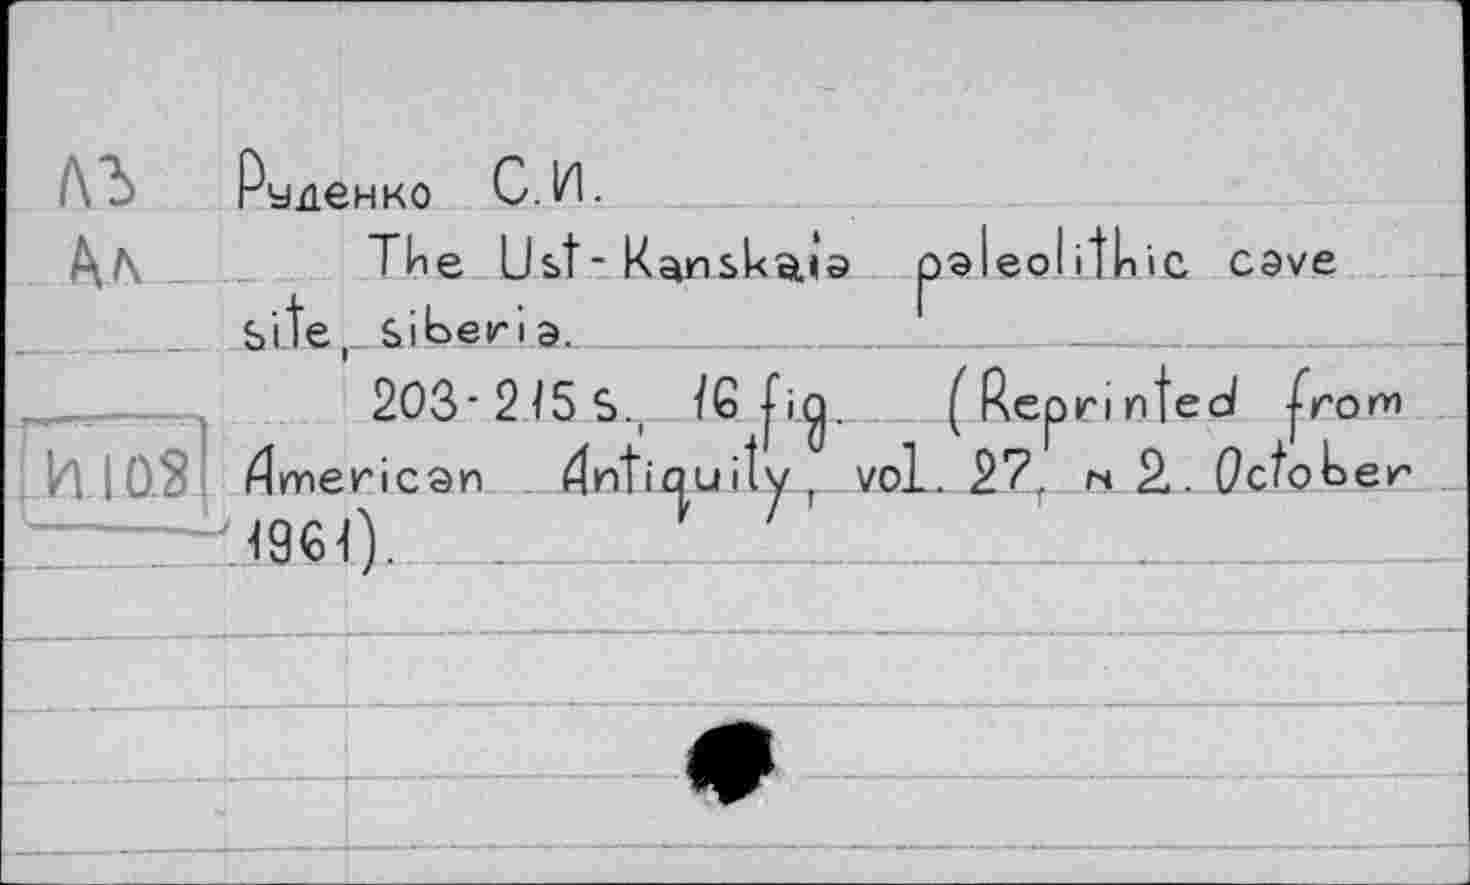 ЛЪ Руденко С.И.
Ал The Ust-Kanskaia paleolithic cave
site, Siberia.
203-215 s., 16 fig. (Reprinted from
И108 American Antiquity, vol. 27, N 2. October
1961).